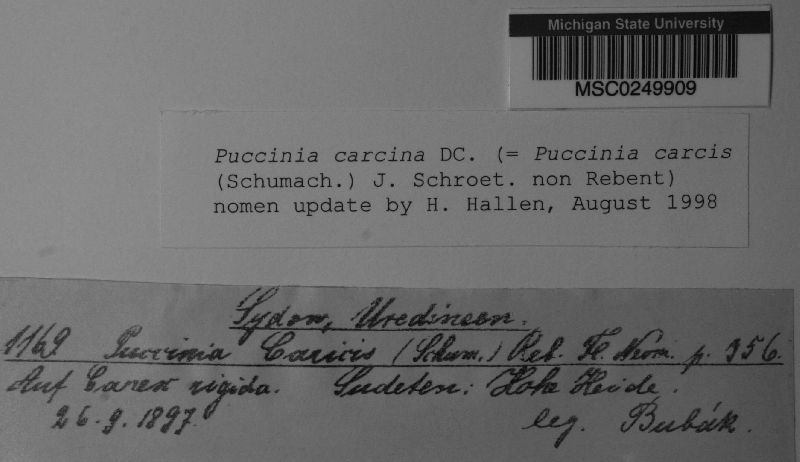 Michigan State University
MSC0249909
Puccinia carcina DC. (= Puccinia carcis
(Schumach.) J. Schroet. non Rebent)
nomen update by H. Hallen, August 1998
Sydow, Uredineen.
1169 Puccinia Caricis (Schum.) Reb. Fl. Neom. p. 356.
Auf Carex rigida. Sudeten: Hohe Heide.
26.9.1897. leg. Bubák.